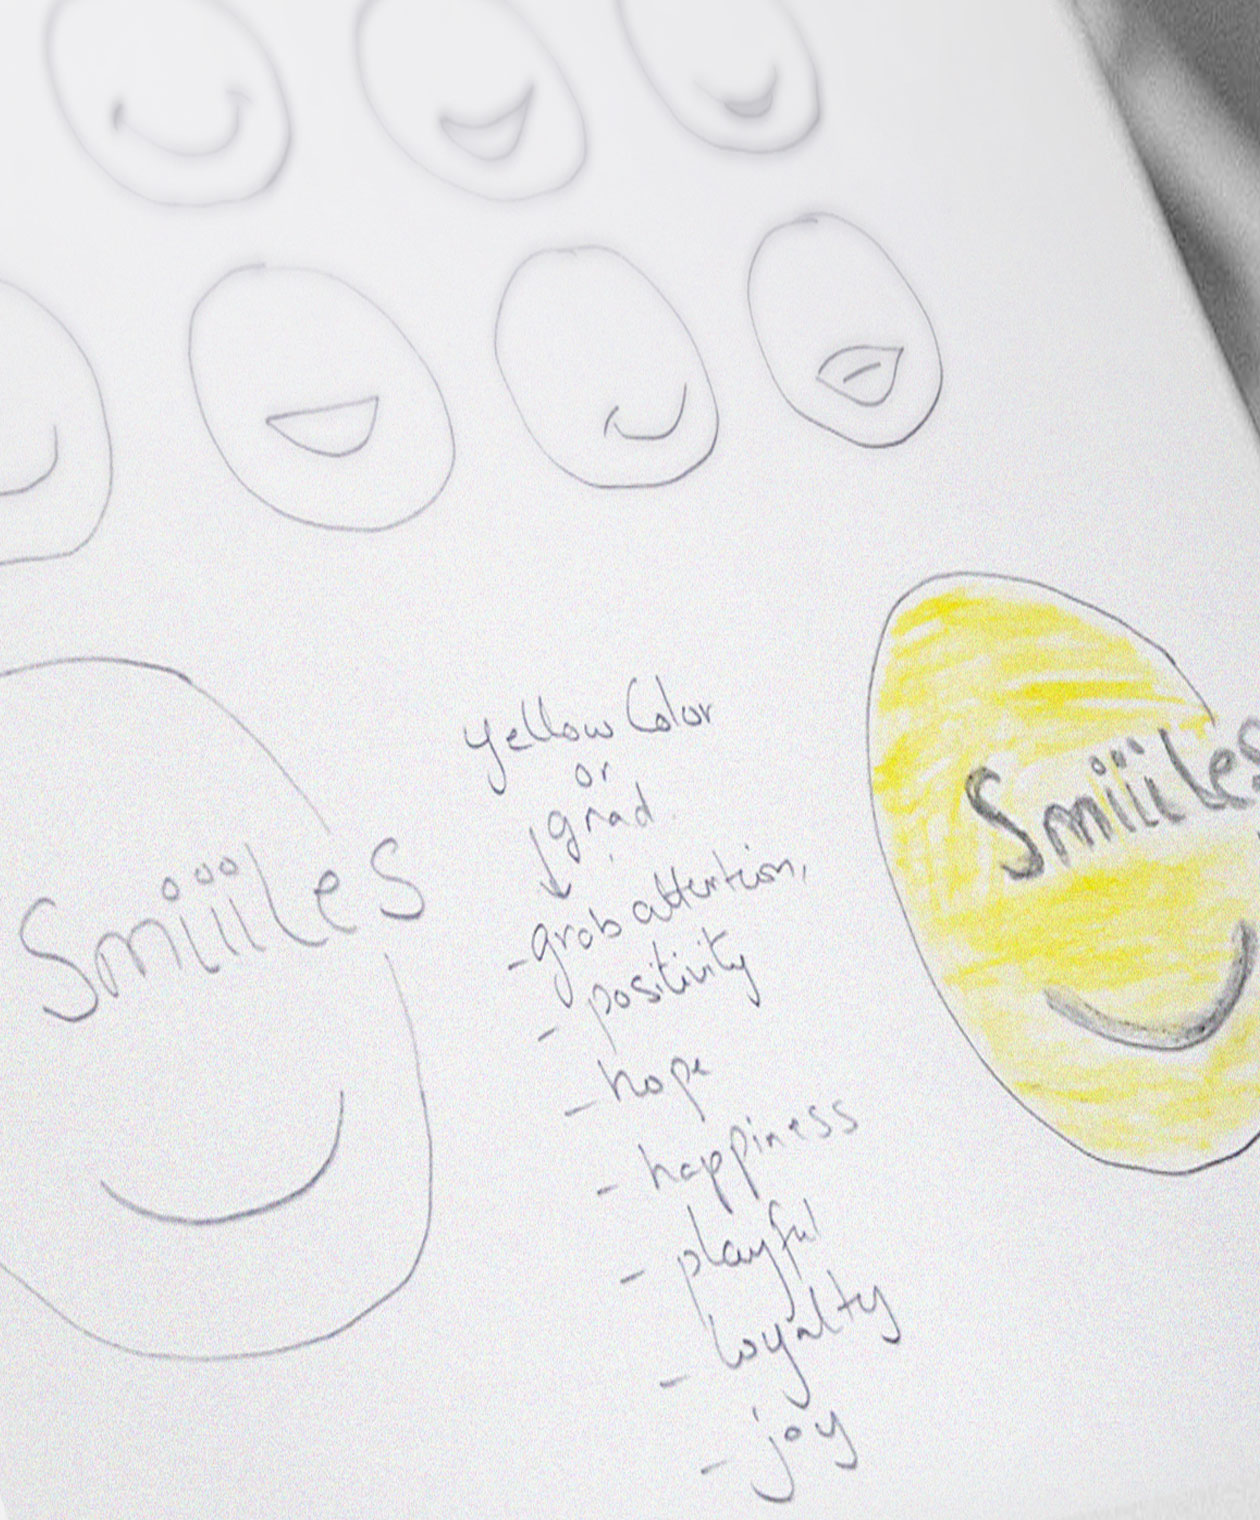 Smiiiles
yellow Color
or
grad.
- grab attention,
- positivity
- hope
- happiness
- playful
- loyalty
- joy
Smiiiles